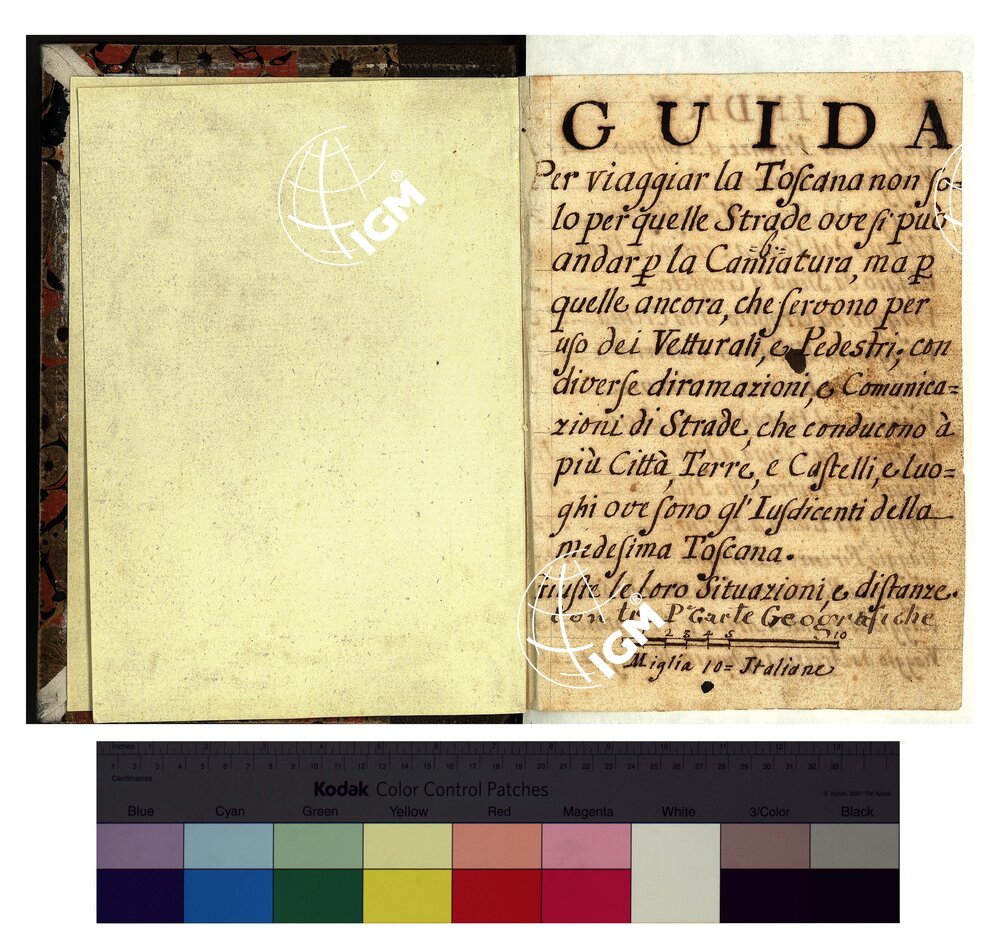 IGM®
GUIDA
Per viaggiar la Toſcana non ſo-
lo per quelle Strade ove ſi può
andar ꝑ la Cambiatura, ma ꝑ
quelle ancora, che ſervono per
uſo dei Vetturali, e Pedestri; con
diverſe diramazioni, e Comunica=
zioni di Strade, che conducono à
più Città, Terre, e Caſtelli, e luo=
ghi ove ſono gl' Iuſdicenti della
medeſima Toſcana.
le loro Situazioni, e diſtanze.
Con tre Carte Geografiche
2 3 4 5 10
Miglia 10= Italiane
IGM®
Inches 1 2 3 4 5 6 7 8 9 10 11 12 13
1 2 3 4 5 6 7 8 9 10 11 12 13 14 15 16 17 18 19 20 21 22 23 24 25 26 27 28 29 30 31 32 33
Centimetres
Kodak Color Control Patches
© Kodak, 2007 TM: Kodak
Blue Cyan Green Yellow Red Magenta White 3/Color Black